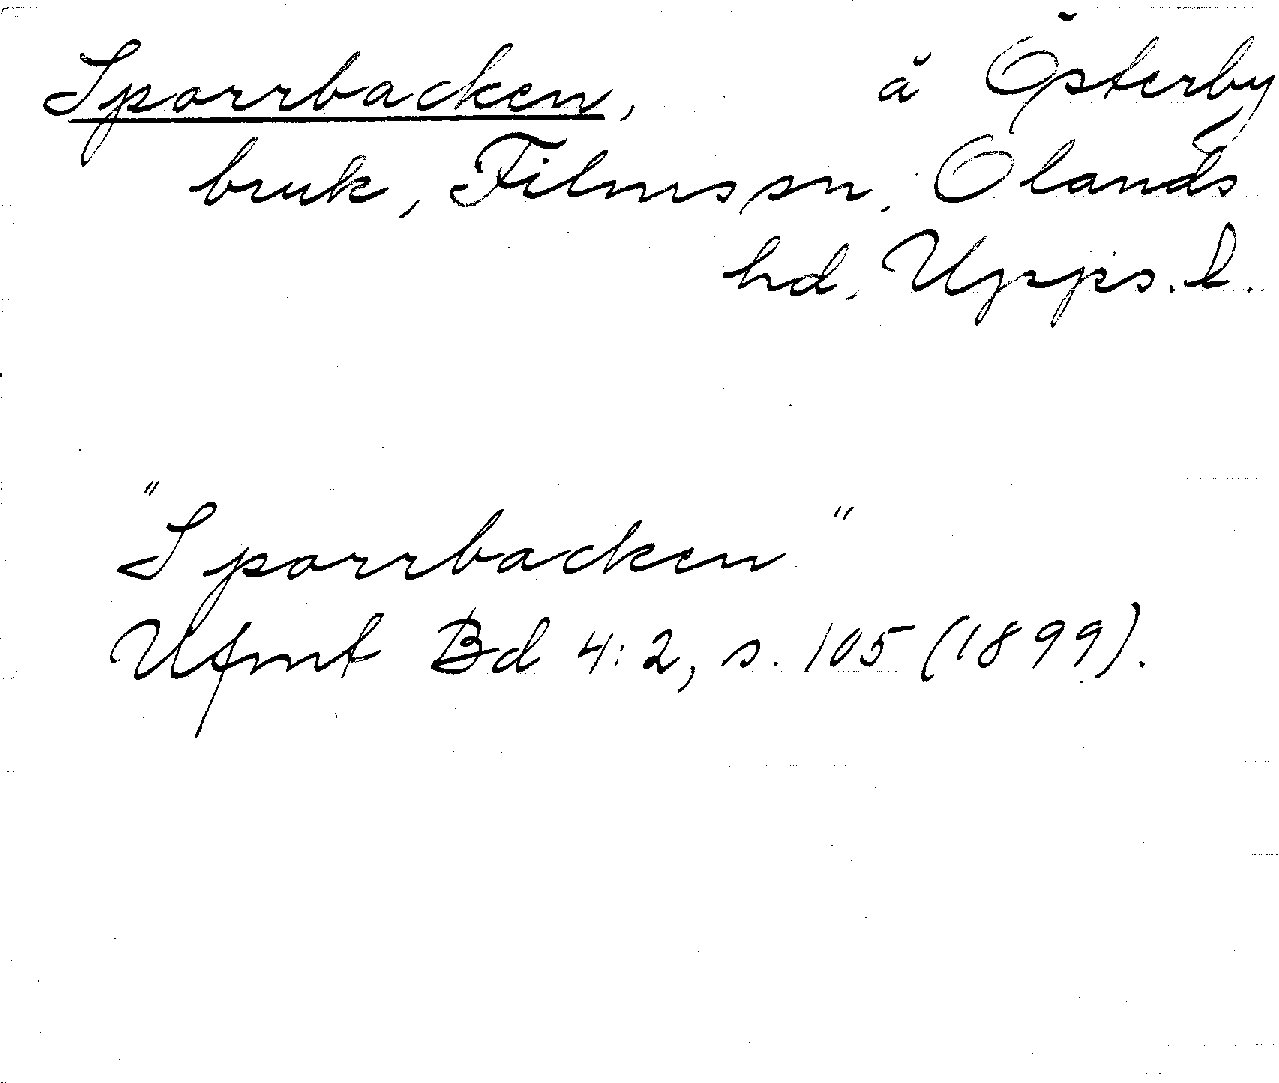 Sporrbacken, å Österby
bruk, Films sn, Olands
hd, Upps. l.
"Sporrbacken"
Ufmt Bd 4:2, s. 105 (1899).